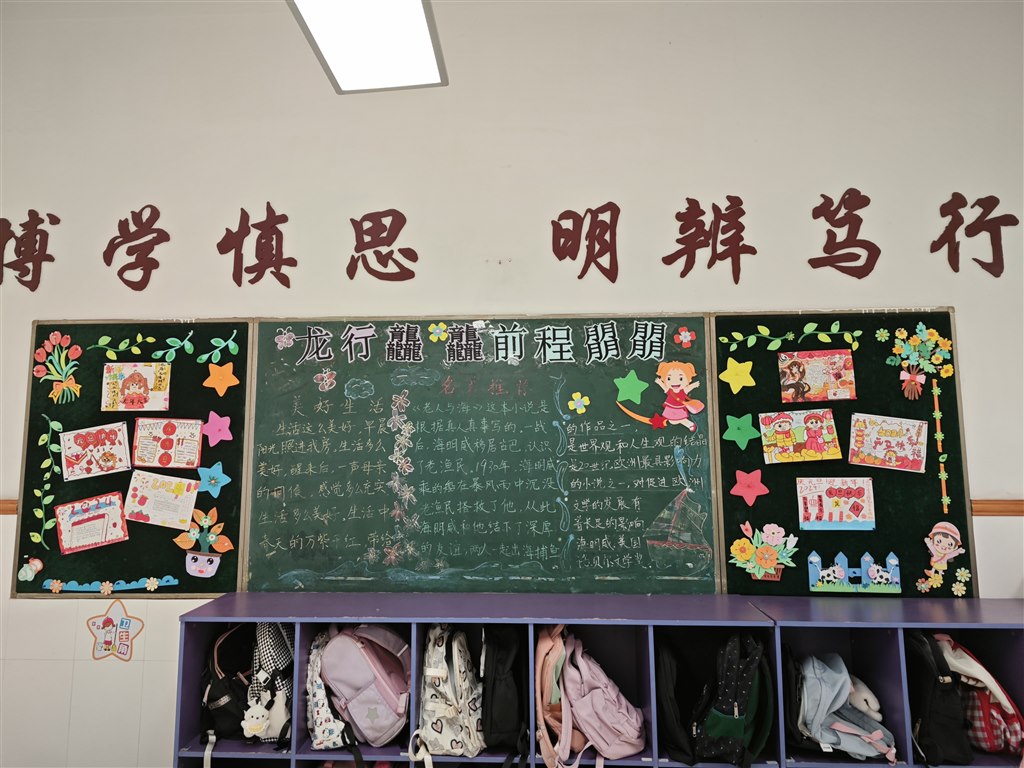 博学慎思 明辨笃行
龙行龘龘前程朤朤
名著推荐
美好生活
生活这么美好,早晨
阳光照进我房,生活多么
美好,醒来后,一声母亲
的问候,感觉多么充实
生活多么美好,生活中
春天的万紫千红,带给
《老人与海》这本小说是
根据真人真事写的,一战
后,海明威移居古巴,认识
了老渔民,1930年,海明威
乘的船在暴风雨中沉没
老渔民搭救了他,从此
海明威和他结下了深厚
的友谊,两人一起出海捕鱼
的作品之一,
是世界观和人生观的结晶
是20世纪欧洲最具影响力
的小说之一,对促进欧洲
文学的发展有
着长足的影响
海明威,美国
诺贝尔文学奖
卫生角